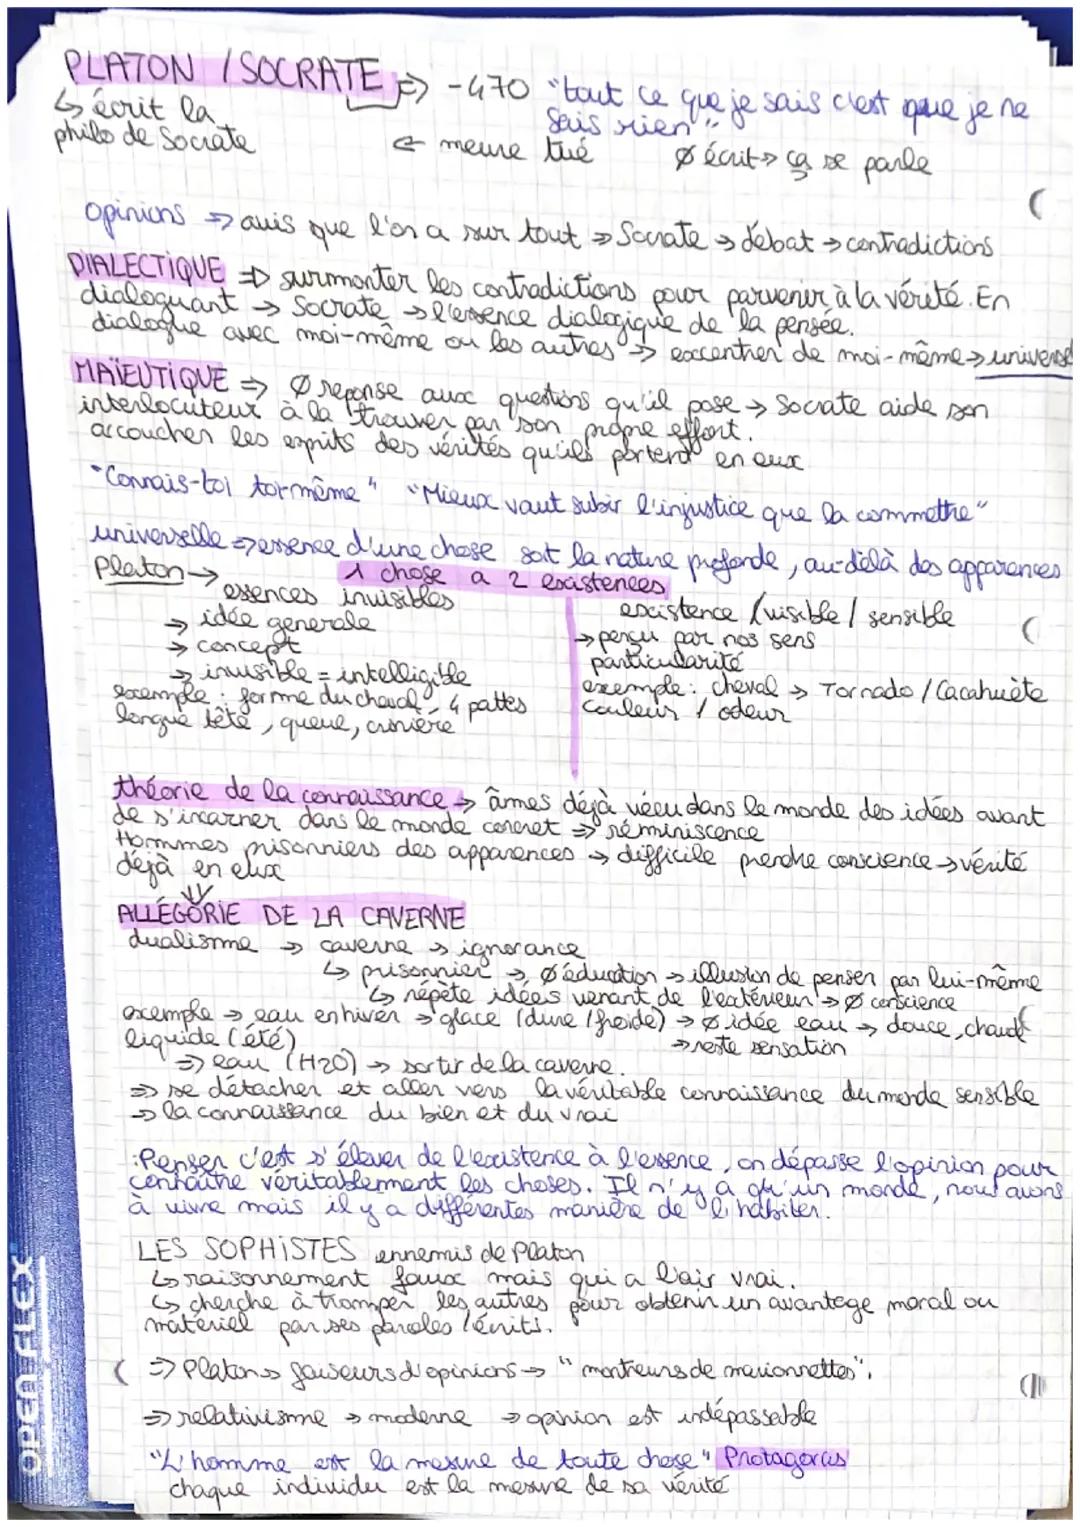 PLATON / SOCRATE => -470 "tout ce que je sais c'est que je ne
sais rien".
↳ écrit la
philo de Socrate
← meure tué ∅ écrit → ça se parle
opinions → avis que l'on a sur tout => Socrate → débat → contradictions
DIALECTIQUE => surmonter les contradictions pour parvenir à la vérité. En
dialoguant → Socrate → l'essence dialogique de la pensée.
dialogue avec moi-même ou les autres → excentrer de moi-même → universel
MAÏEUTIQUE => ∅ reponse aux questions qu'il pose → Socrate aide son
interlocuteur à la trouver par son propre effort.
accoucher les esprits des vérités qu'ils portent en eux
"Connais-toi toi-même" "Mieux vaut subir l'injustice que la commettre"
universelle => essence d'une chose soit la nature profonde, au-délà des apparences
Platon → 1 chose a 2 existences
essences invisibles
→ idée generale
→ concept
→ invisible = intelligible
exemple : forme du cheval, 4 pattes
longue tête, queue, crinière
existence / visible / sensible
→ perçu par nos sens
particularité
exemple : cheval → Tornado / Cacahuète
couleur / odeur
théorie de la connaissance → âmes déjà vécu dans le monde des idées avant
de s'incarner dans le monde concret => réminiscence
Hommes prisonniers des apparences → difficile prendre conscience → vérité
déjà en eux
ALLÉGORIE DE LA CAVERNE
dualisme → caverne → ignorance
↳ prisonnier → ∅ éducation → illusion de penser par lui-même
↳ répète idées venant de l'extérieur → ∅ conscience
exemple → eau en hiver → glace (dure / froide) → ∅ idée eau → douce, chaude
liquide (été) → reste sensation
=> eau (H2O) → sortir de la caverne.
=> se détacher et aller vers la véritable connaissance du monde sensible
→ la connaissance du bien et du vrai
:Penser c'est s'élever de l'existence à l'essence, on dépasse l'opinion pour
connaître véritablement les choses. Il n'y a qu'un monde, nous avons
à vivre mais il y a différentes manière de l'habiter.
LES SOPHISTES ennemis de Platon
↳ raisonnement faux mais qui a l'air vrai.
↳ cherche à tromper les autres pour obtenir un avantage moral ou
matériel par ses paroles / écrits.
=> Platon → faiseurs d'opinions → "montreurs de marionnettes".
=> relativisme → moderne → opinion est indépassable
"L'homme est la mesure de toute chose" Protagoras
chaque individu est la mesure de sa vérité
OPEN FLEX